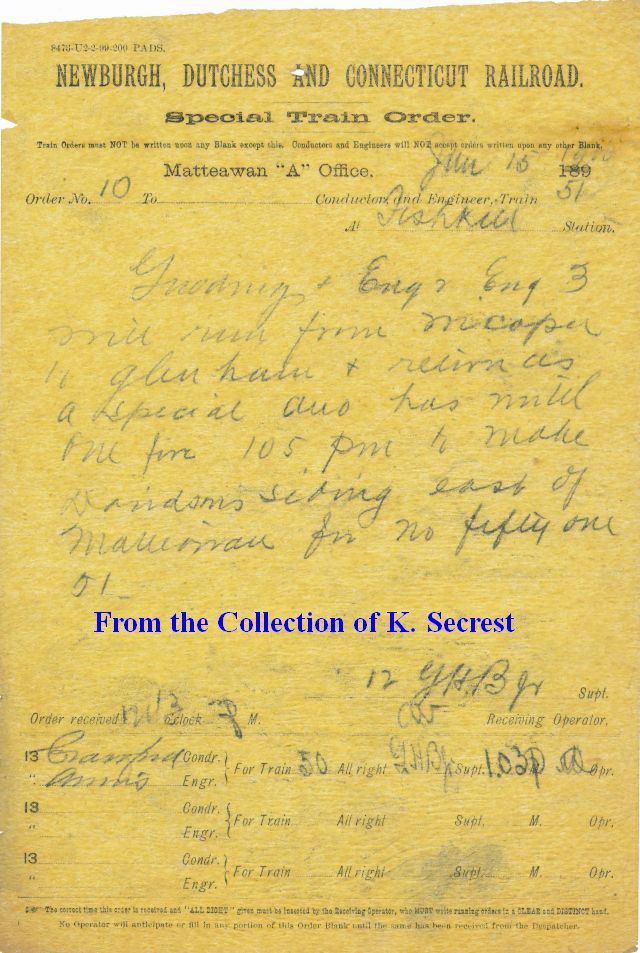 8473-U2-2-99-200 PADS.
NEWBURGH, DUTCHESS AND CONNECTICUT RAILROAD.
Special Train Order.
Train Orders must NOT be written upon any Blank except this. Conductors and Engineers will NOT accept orders written upon any other Blank.
Matteawan "A" Office. Jan 15 189
Order No. 10 To Conductor and Engineer, Train 51
At Fishkill Station.
+ Engr Eng 3
will run from
to glenham + return as
a special and has until
one five 105 pm to make
siding east of
Matteawan for no fifty one
51
From the Collection of K. Secrest
12 GHB Jr Supt.
Order received o'clock M. Receiving Operator.
13 Crawford Condr.
" Engr. For Train 50 All right Supt. 1.03 P M. Opr.
13 Condr.
" Engr. For Train All right Supt. M. Opr.
13 Condr.
" Engr. For Train All right Supt. M. Opr.
The correct time this order is received and "ALL RIGHT" given must be inserted by the Receiving Operator, who MUST write running orders in a CLEAR and DISTINCT hand.
No Operator will anticipate or fill in any portion of this Order Blank until the same has been received from the Despatcher.